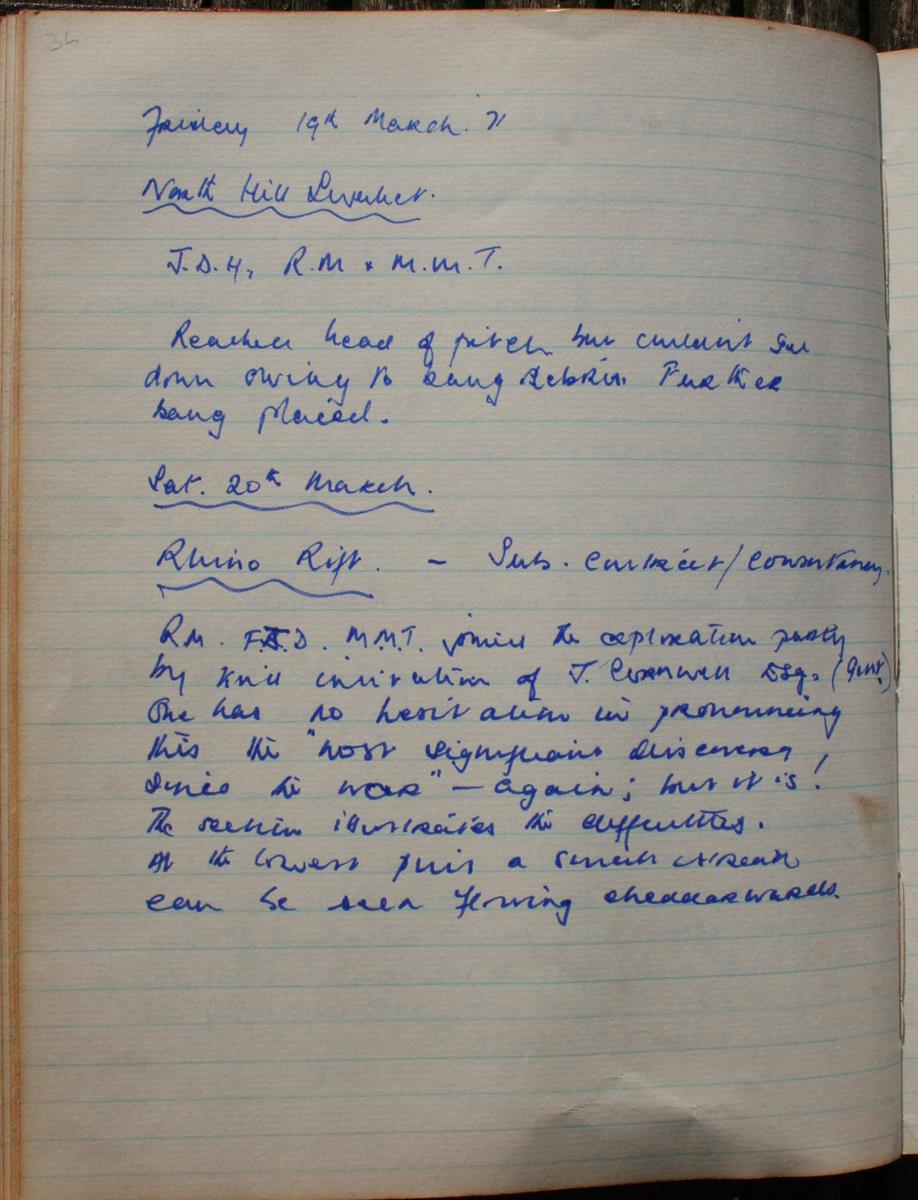 36
Friday 19th March. 71
North Hill Swallet.
J.D.H, R.M & M.M.T.
Reached head of pitch but couldn't get
down owing to bang debris. Further
bang placed.
Sat. 20th March.
Rhino Rift. - Sub. Contract/Consultancy.
R.M. F.S.D. M.M.T. joined the exploration party
by kind invitation of J. Cornwell Esq. (Gent.)
One has no hesitation in pronouncing
this the "most significant discovery
since the war" - again; but it is!
The section illustrates the difficulties.
At the lowest point a small stream
can be seen flowing cheddarwards.